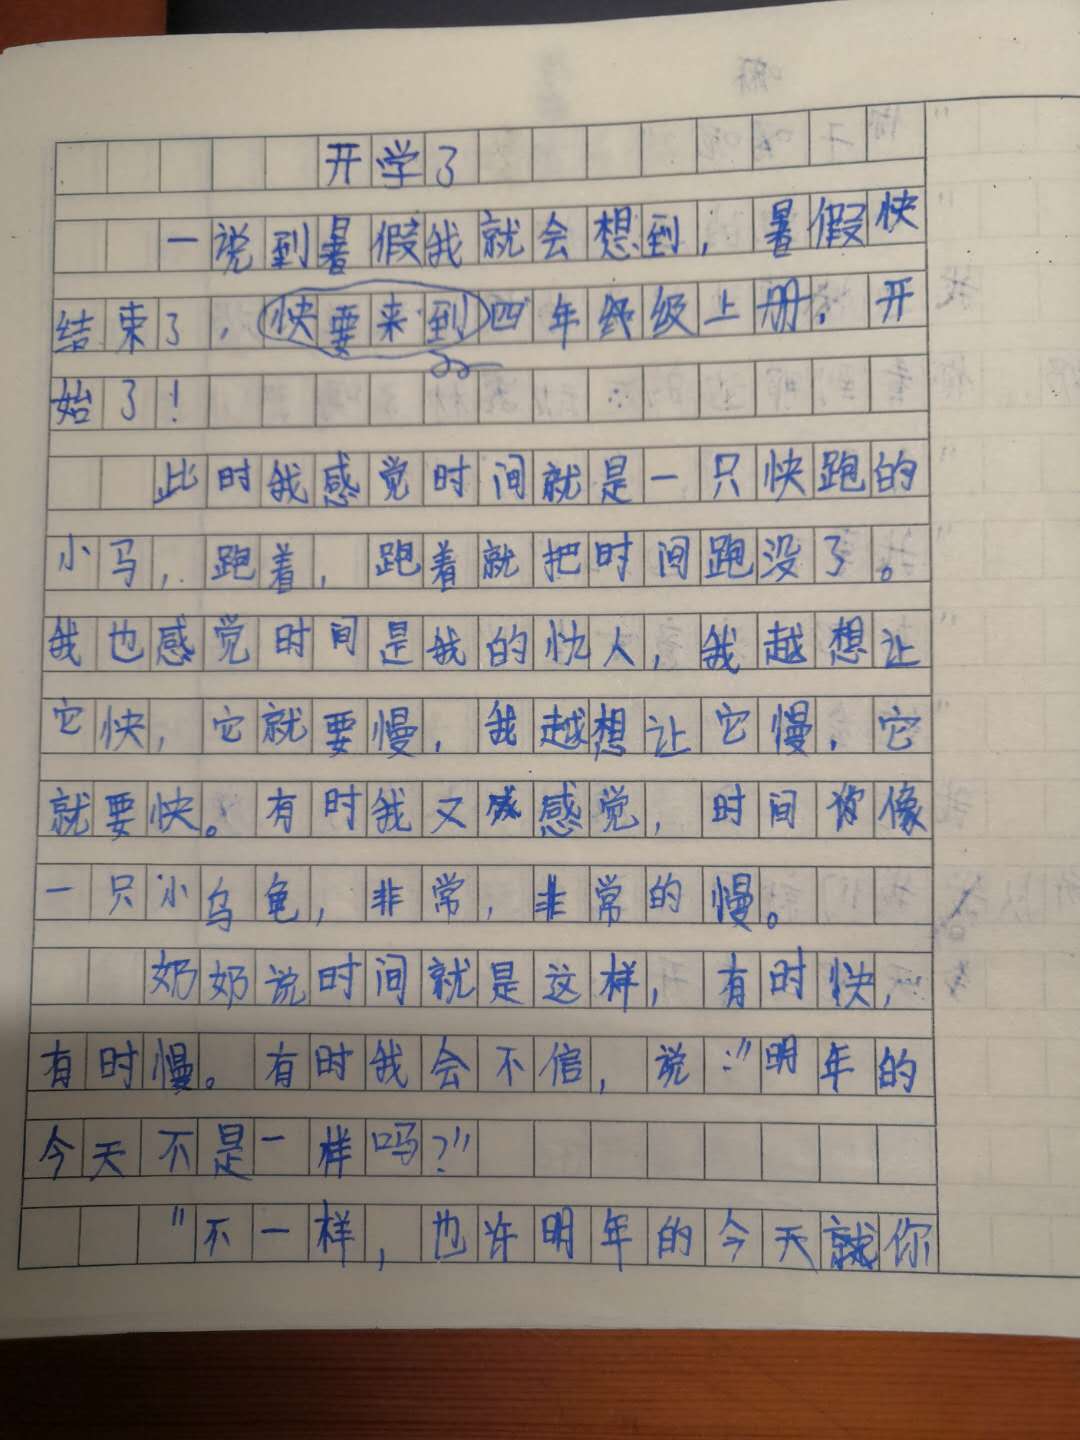 开学了
一说到暑假我就会想到，暑假快
结束了，快要来到四年级上册，开
始了！
此时我感觉时间就是一只快跑的
小马，跑着，跑着就把时间跑没了。
我也感觉时间是我的忱人，我越想让
它快，它就要慢，我越想让它慢，它
就要快。有时我又感觉，时间像
一只小乌龟，非常，非常的慢。
奶奶说时间就是这样，有时快，
有时慢。有时我会不信，说："明年的
今天不是一样吗？"
"不一样，也许明年的今天就你